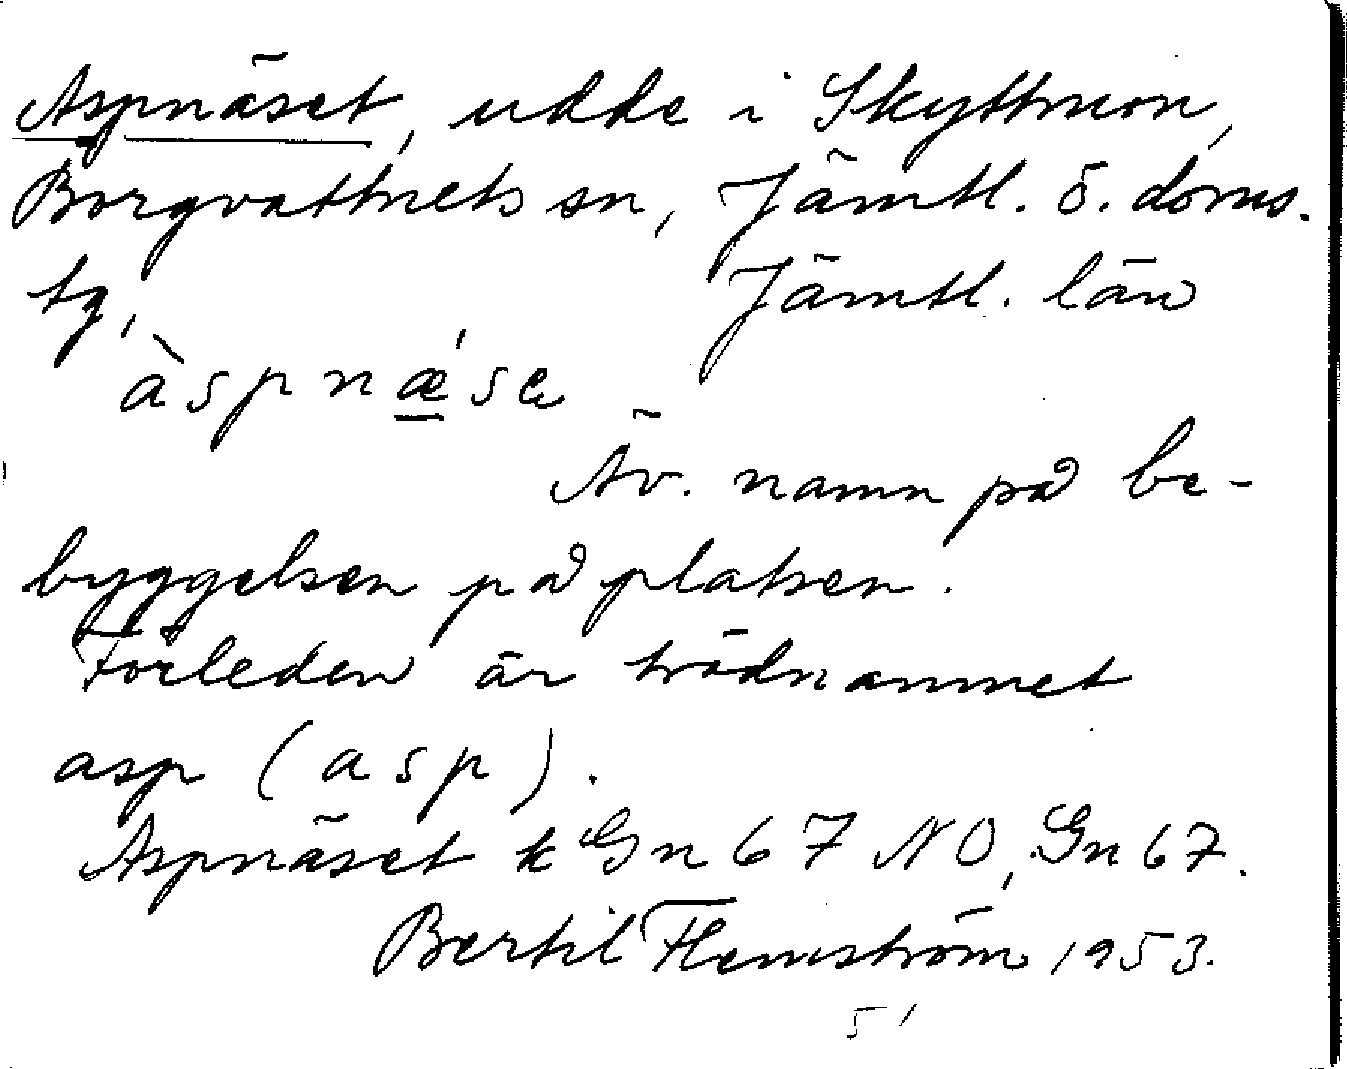 Aspnäset, udde i Skyttmon,
Borgvattnets sn, Jämtl. ö. doms.
tg, Jämtl. län
àspnǽ̲se
Äv. namn på be-
byggelsen på platsen.
Förleden är trädnamnet
asp (asp).
Aspnäset k Gn 67 NO, Gn 67.
Bertil Flemström 1953.